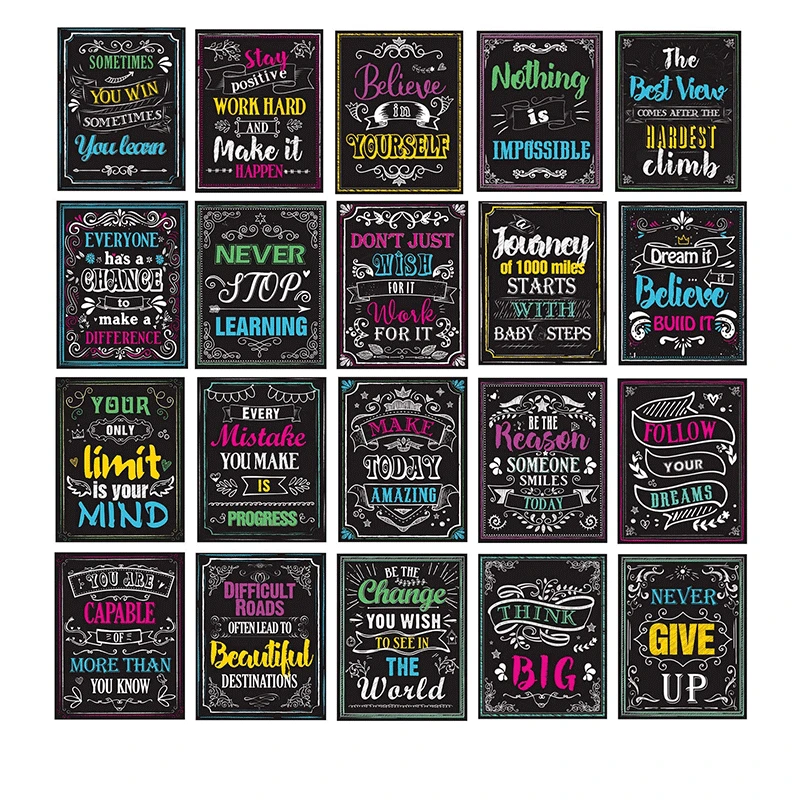 SOMETIMES
YOU WIN
SOMETIMES
You learn
Stay
positive
WORK HARD
AND
Make it
HAPPEN
Believe
in
YOURSELF
Nothing
is
IMPOSSIBLE
The
Best View
COMES AFTER THE
HARDEST
climb
EVERYONE
has a
CHANCE
to
make a
DIFFERENCE
NEVER
STOP
LEARNING
DON'T JUST
WISH
FOR IT
Work
FOR IT
a
Journey
of 1000 miles
STARTS
WITH
BABY STEPS
Dream it
it
Believe
BUILD IT
YOUR
ONLY
limit
is your
MIND
EVERY
Mistake
YOU MAKE
IS
PROGRESS
MAKE
TODAY
AMAZING
BE THE
Reason
SOMEONE
SMILES
TODAY
FOLLOW
YOUR
DREAMS
YOU ARE
CAPABLE
OF
MORE THAN
YOU KNOW
DIFFICULT
ROADS
OFTEN LEAD TO
Beautiful
DESTINATIONS
BE THE
Change
YOU WISH
TO SEE IN
THE
World
THINK
BIG
NEVER
GIVE
UP